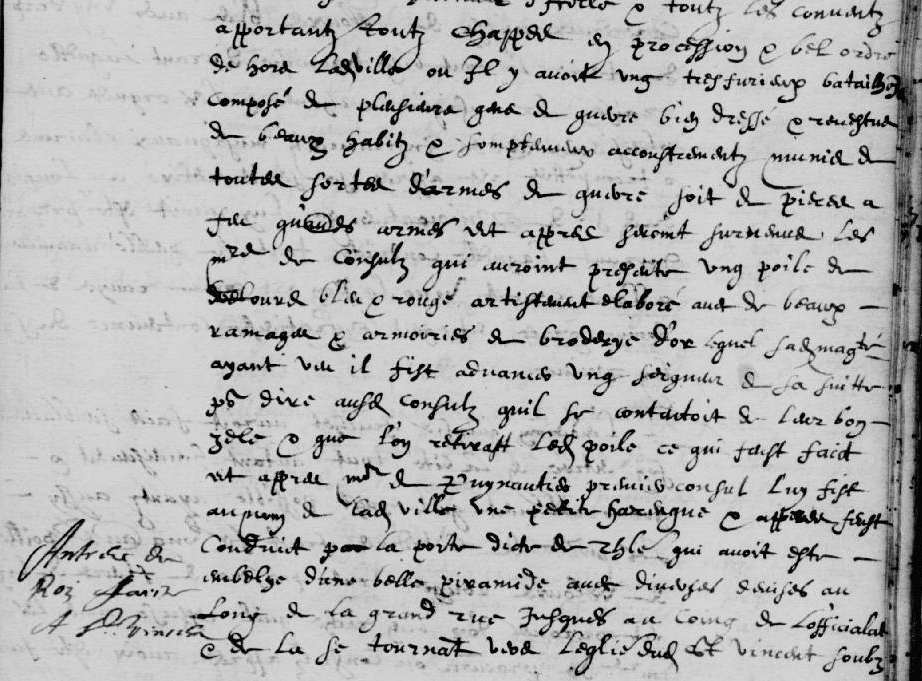 offerte & toutz les conventz
apportantz toutz chappes en procession & bel ordre
de hors ladville ou Il y avoit ung tresfurieux bataillon
composé de plusieurs gens de guerre bien dresse & revestus
de beaux habitz & somptueux accoustrementz munis de
toutes sortes d'armes de guerre soit de pieces a
feu grandes armes et appres seroint survenus les
mrs de Consulz qui auroint presente ung poile de
velours bleu & rouge artistement elaboré avec de beaux
ramages & armoiries de broderye d'or lequel sad magté
ayant veu il fist advancer ung seigneur de sa suitte
pr dire ausd Consulz quil se contentoit de leur bon
zele & que lon retirast led poile ce qui fust faict
et appres mr de premier consul luy fist
au nom de lad ville une petite harengue & appres fust
Conduict par la porte dicte de rhle qui avoit este
enbelye d'une belle piramide avec diverses devises au
Long de la grand rue Jusques au Coing de Lofficialat
& de la se tournat vers Leglise dud St vincent soubz
Antree de
Roi faicte
A St Vincens